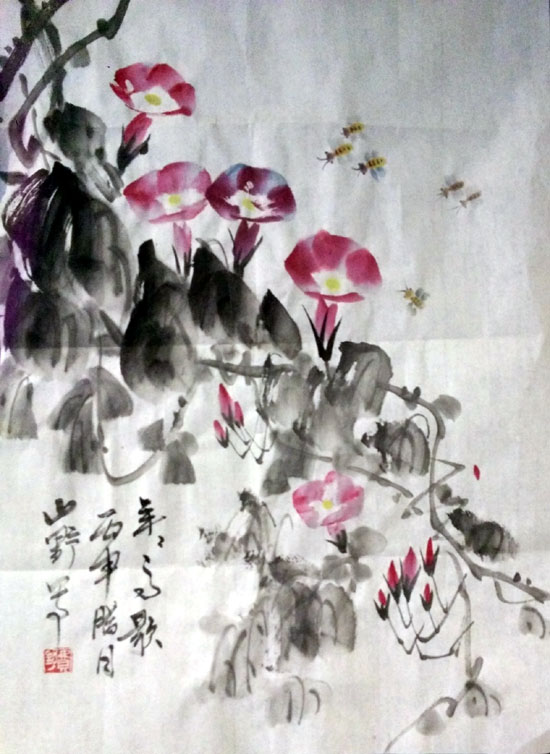 年々高歌
丙申腊月
山野